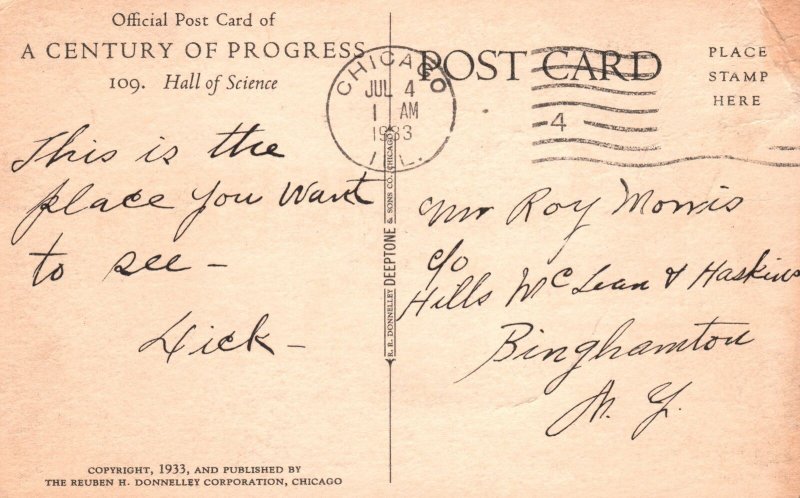 Official Post Card of
A CENTURY OF PROGRESS
109. Hall of Science
This is the
place you want
to see –
Dick –
COPYRIGHT, 1933, AND PUBLISHED BY
THE REUBEN H. DONNELLEY CORPORATION, CHICAGO
R. R. DONNELLEY DEEPTONE & SONS CO., CHICAGO
CHICAGO
JUL 4
1 AM
1933
ILL.
4
POST CARD
PLACE
STAMP
HERE
Mr Roy Morris
c/o
Hills McLean & Haskins
Binghamton
N. Y.